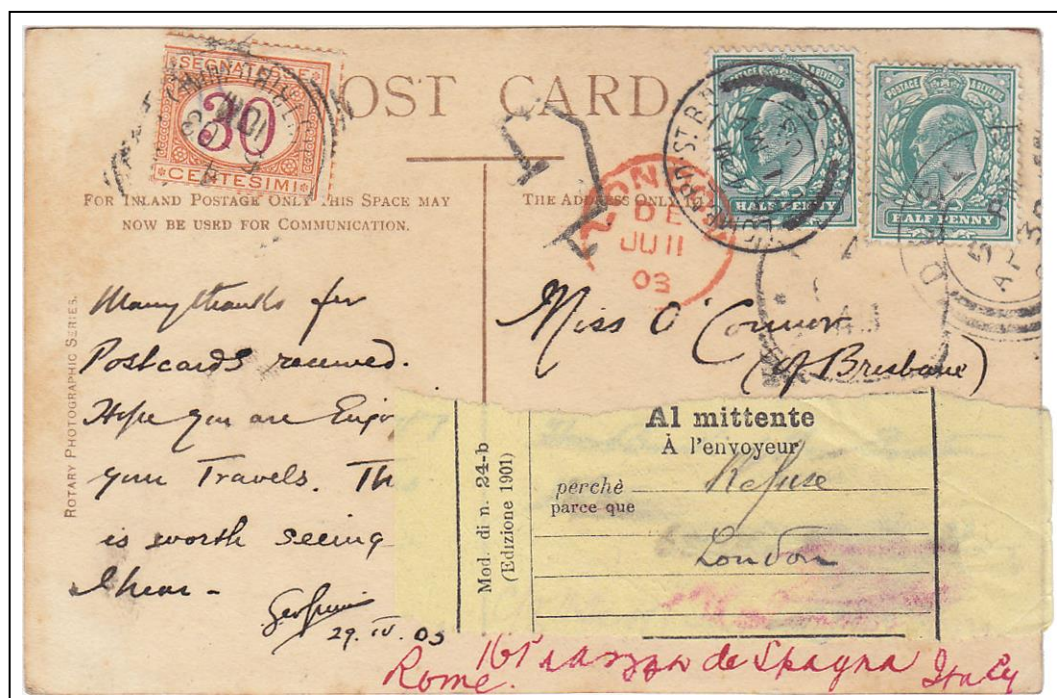 POST CARD
SEGNATASSE
30
CENTESIMI
FOR INLAND POSTAGE ONLY THIS SPACE MAY
NOW BE USED FOR COMMUNICATION.
THE ADDRESS ONLY TO
POSTAGE & REVENUE
HALF PENNY
POSTAGE & REVENUE
HALF PENNY
LONDON
DE
JU 11
03
T
ROTARY PHOTOGRAPHIC SERIES.
Many thanks for
Postcards received.
Hope you are Enjoy
your Travels. Th
is worth seeing
I hear -
29. IV. 03
Miss O'Connor
(of Brisbane)
Mod. di n. 24-b
(Edizione 1901)
Al mittente
À l'envoyeur
perchè
parce que
Refuse
London
Rome. de Spagna Italy